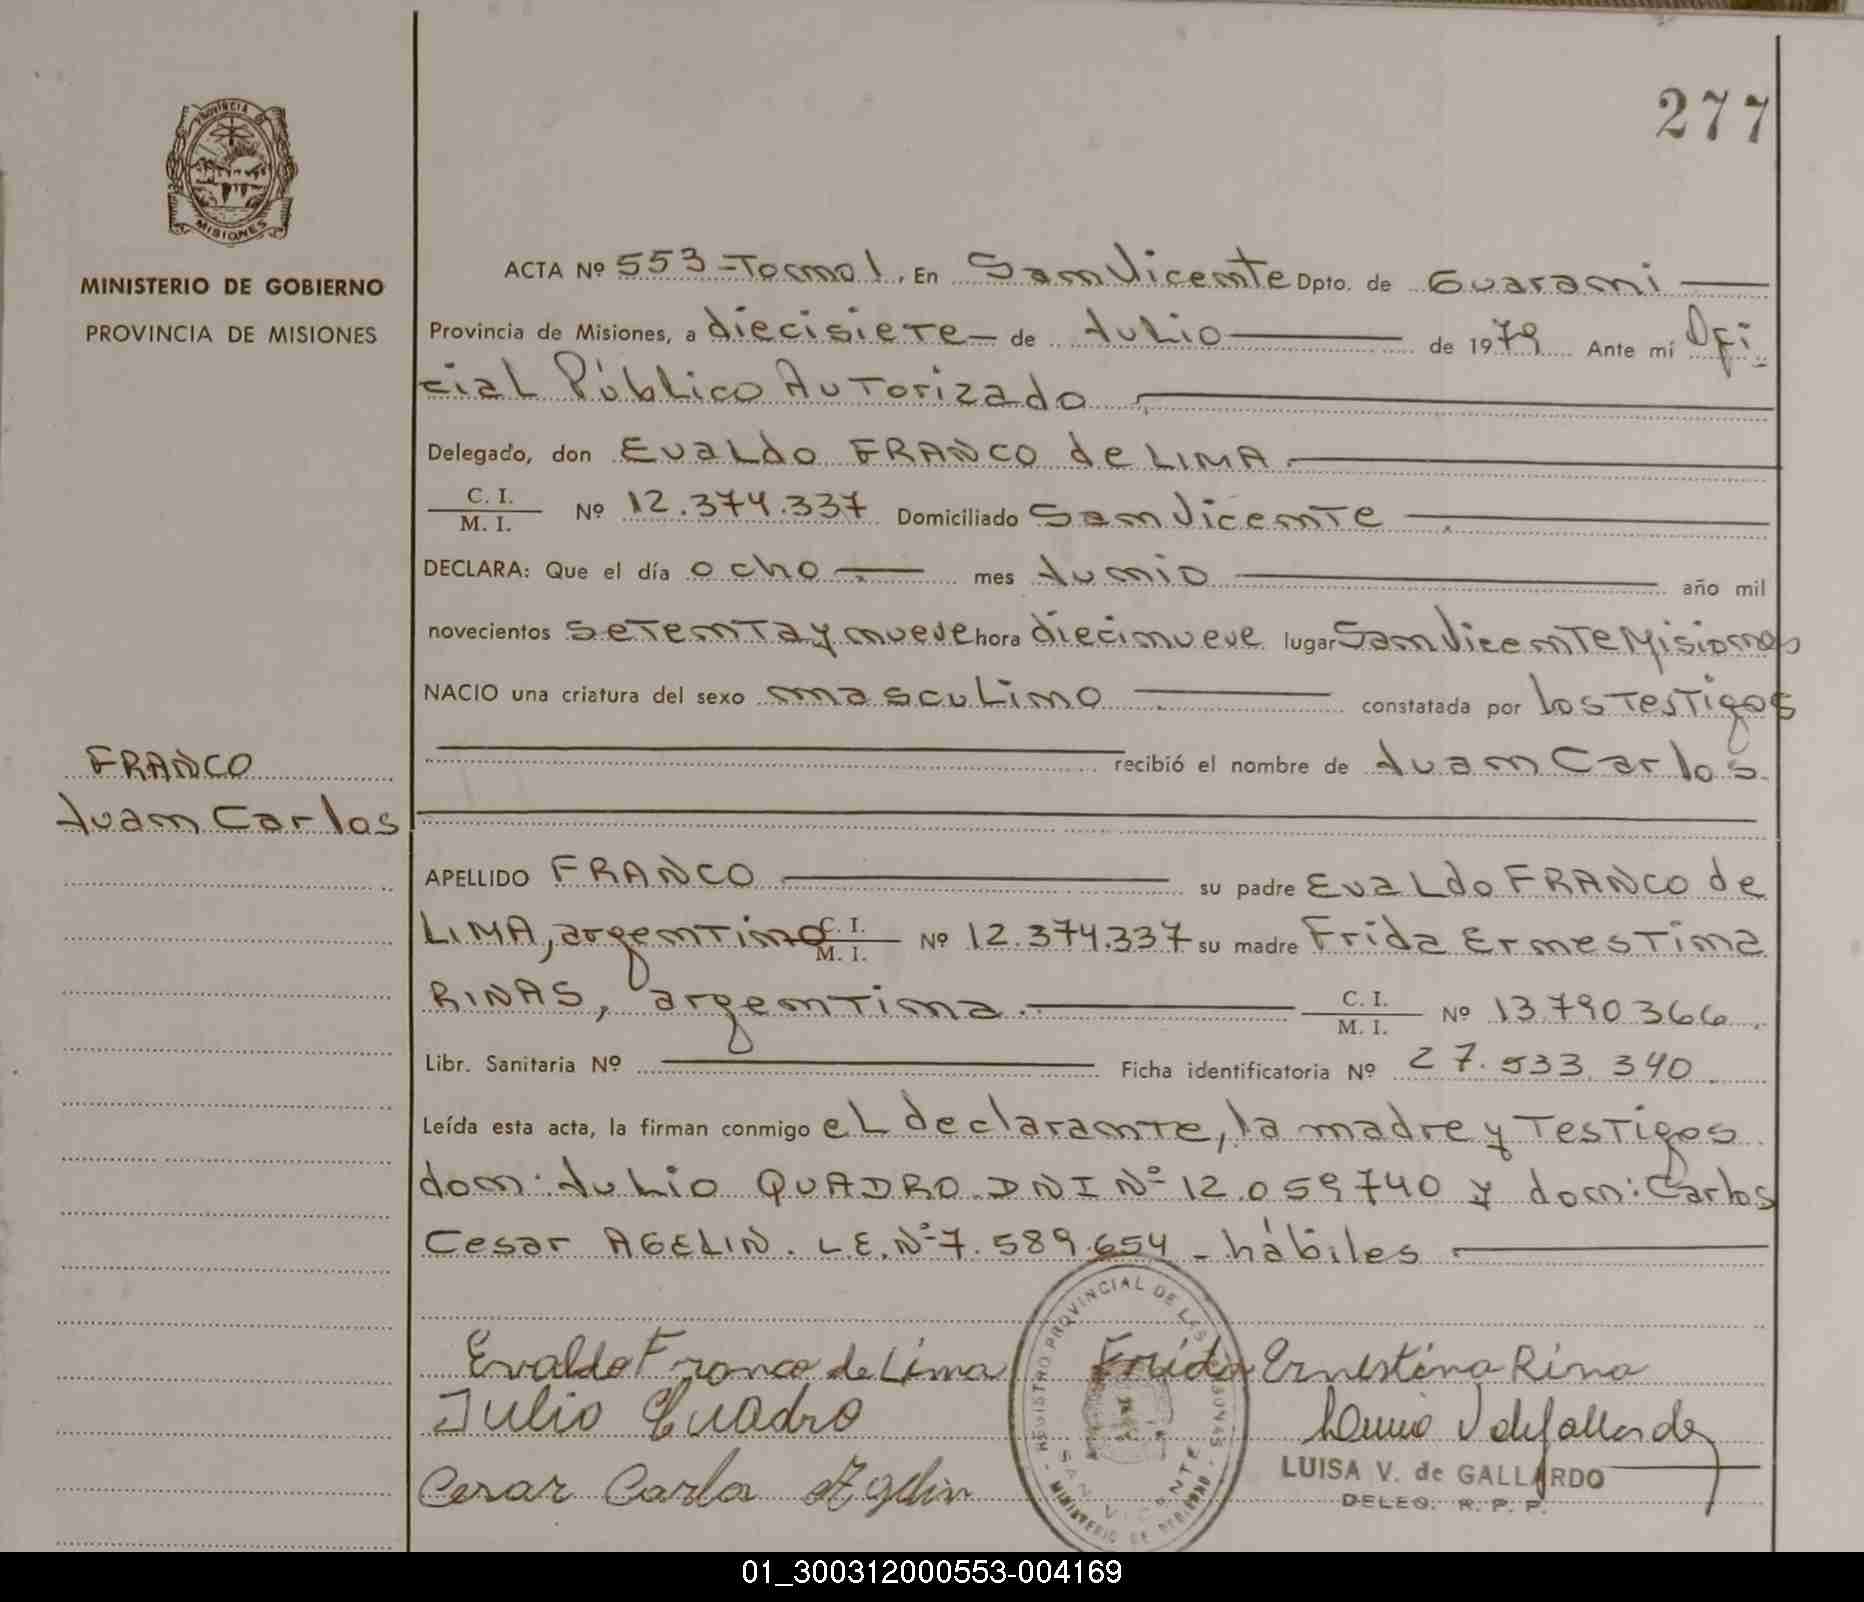 277
PROVINCIA DE
MISIONES
MINISTERIO DE GOBIERNO
PROVINCIA DE MISIONES
ACTA Nº 553-Tomo I. En San Vicente Dpto. de Guaraní
Provincia de Misiones, a diecisiete de Julio de 1979 Ante mí Ofi-
cial Público Autorizado
Delegado, don Evaldo FRANCO de LIMA
C. I.
M. I. Nº 12.374.337 Domiciliado San Vicente
DECLARA: Que el día ocho mes Junio año mil
novecientos setenta y nueve hora diecinueve lugar San Vicente Misiones
NACIO una criatura del sexo masculino constatada por los testigos
recibió el nombre de Juan Carlos
FRANCO
Juan Carlos
APELLIDO FRANCO su padre Evaldo FRANCO de
LIMA, argentino C. I. M. I. Nº 12.374.337 su madre Frida Ernestina
RINAS, argentina C. I. M. I. Nº 13.790366
Libr. Sanitaria Nº Ficha identificatoria Nº 27.533.340
Leída esta acta, la firman conmigo el declarante, la madre y testigos
don: Julio QUADRO. DNI Nº 12.059740 y don: Carlos
Cesar AGELIN. L.E. Nº 7.589.654 - hábiles
Evaldo Franco de Lima Frida Ernestina Rina
Julio Cuadro
Cesar Carlo Agelin
REGISTRO PROVINCIAL DE LAS PERSONAS
SAN VICENTE
MINISTERIO DE GOBIERNO
LUISA V. de GALLARDO
DELEG. R. P. P.
01_300312000553-004169